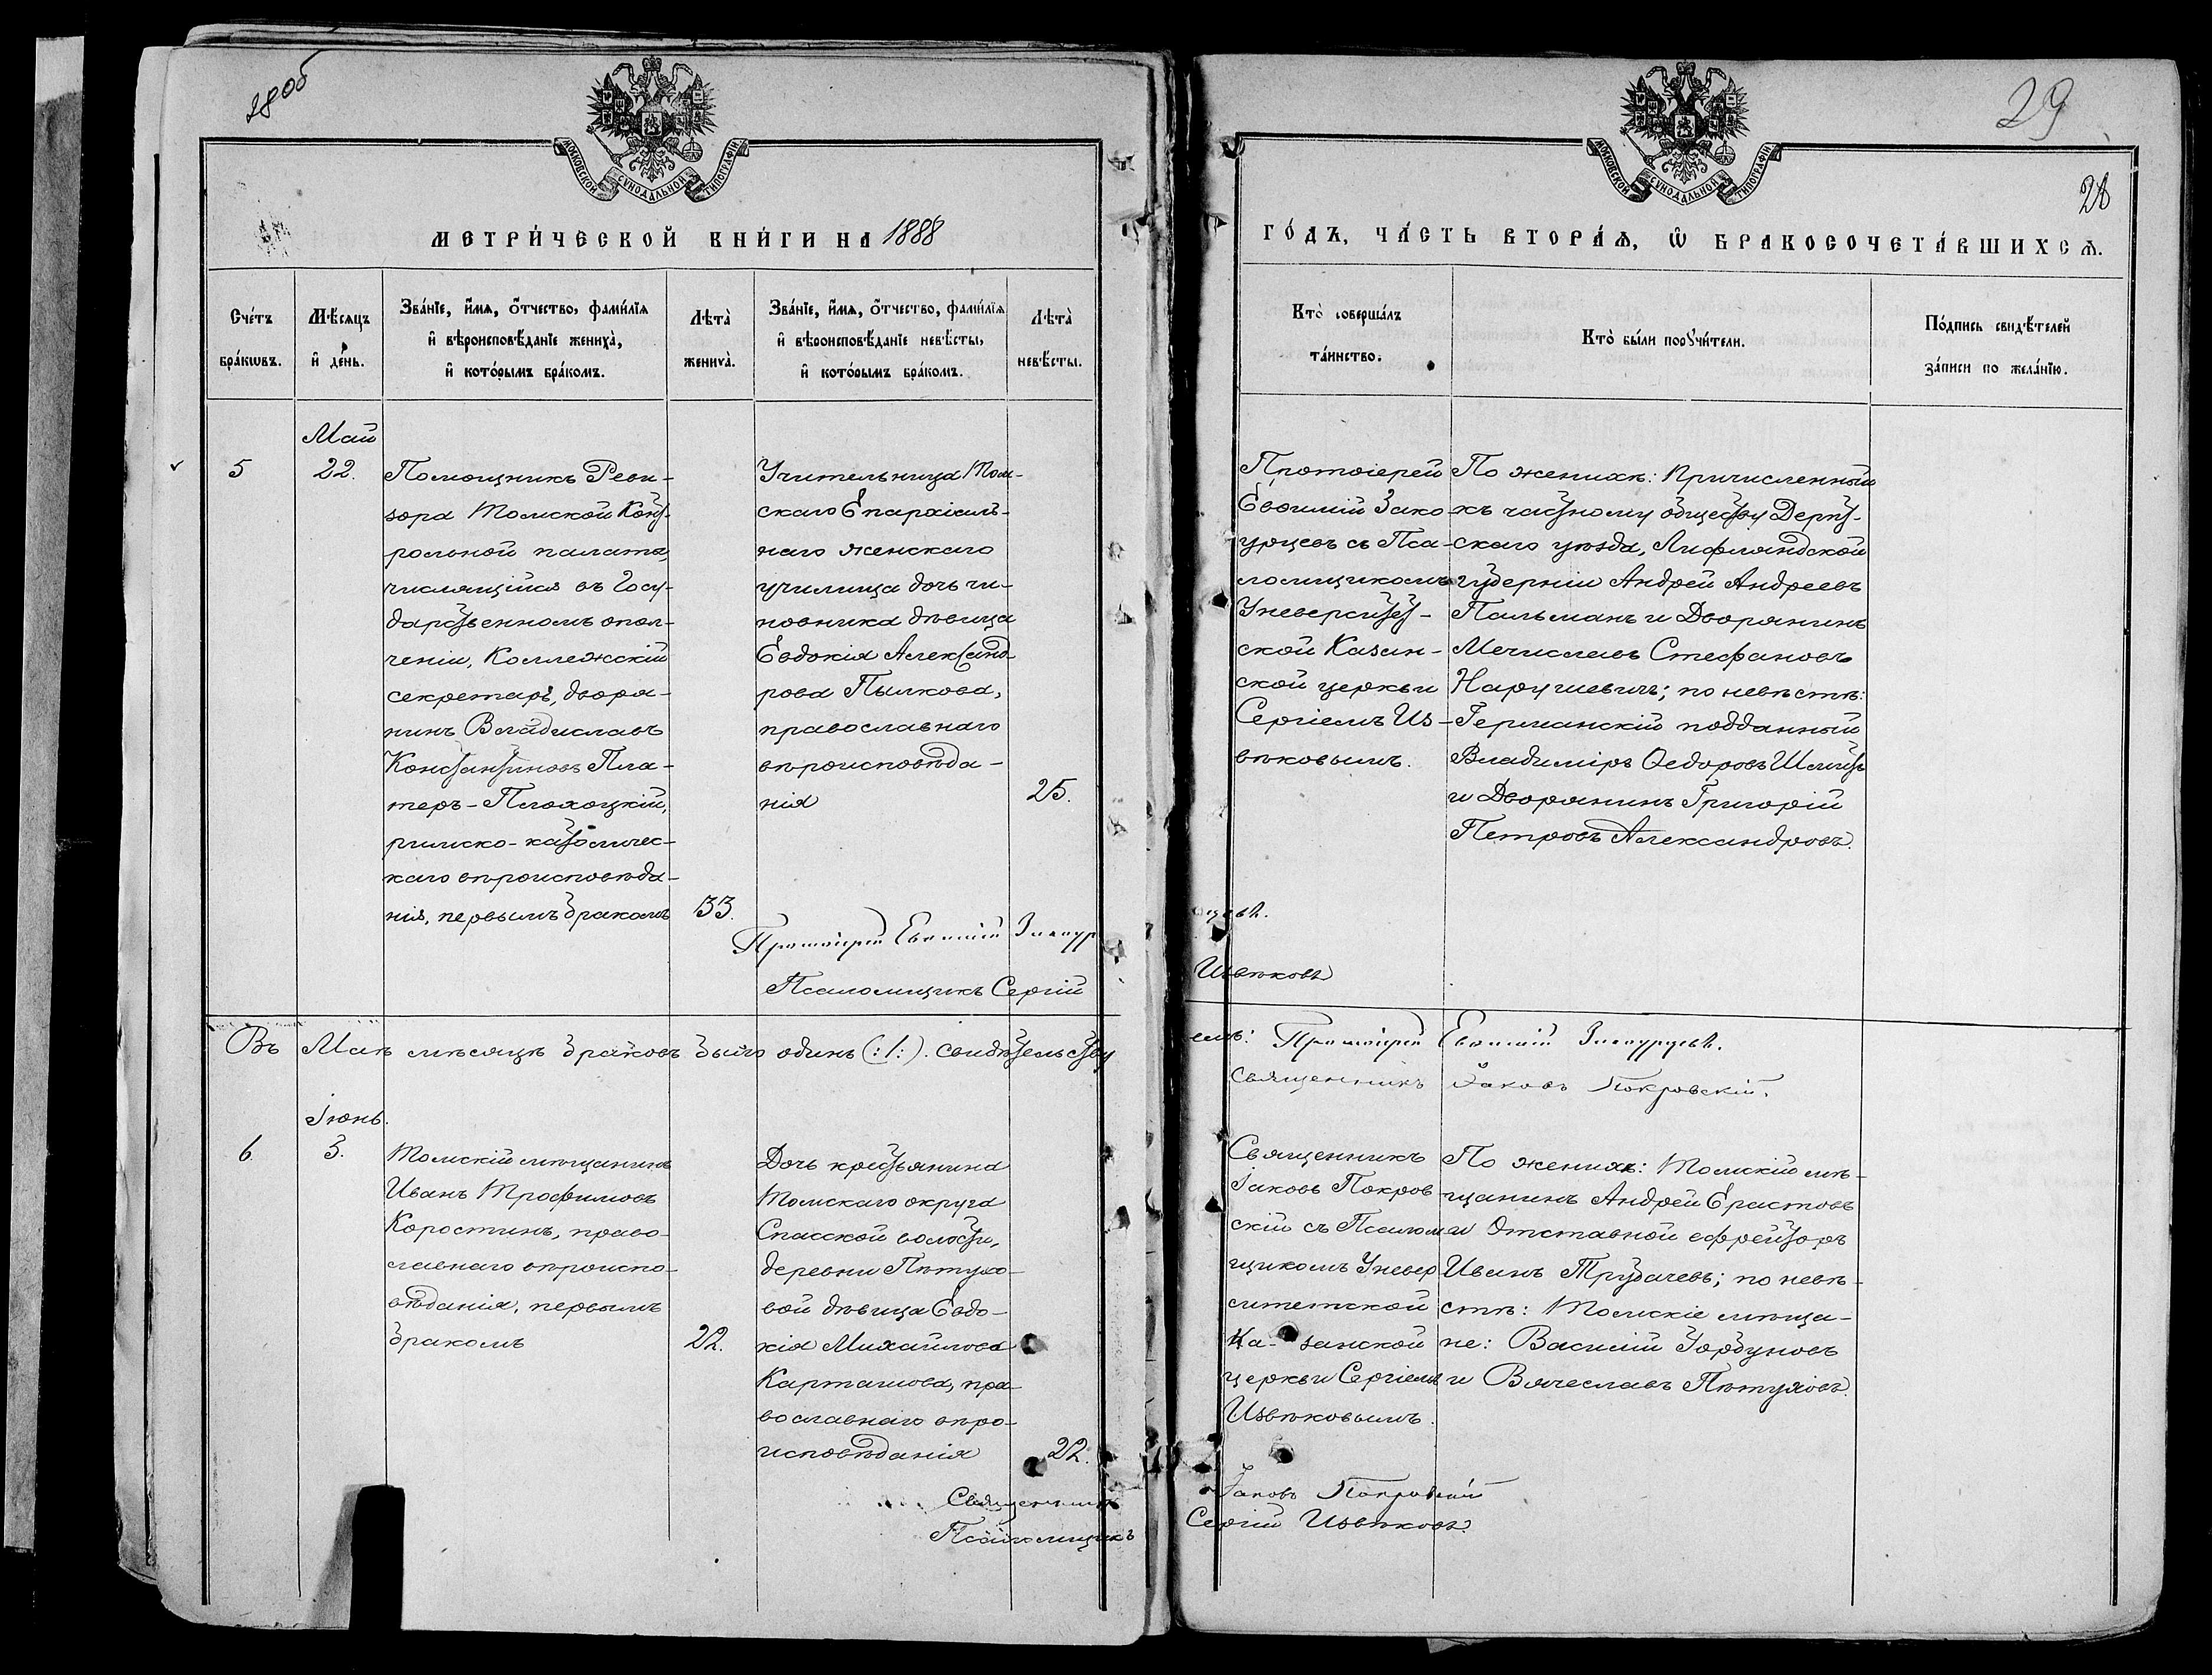 28 об
МОСКОВСКОЙ СѴНОДАЛЬНОЙ ТИПОГРАФІИ
МЕТРИ́ЧЕСКОЙ КНИ́ГИ НА 1888
Сче́тъ бра́кѡвъ.
Мѣ́сяцъ и҆ де́нь.
Зва́нїе, и҆́мя, ѻ҆́тчество, фами́лїя
и҆ вѣроисповѣ́данїе жениха̀,
и҆ кото́рымъ бра́комъ.
Лѣта̀ жениха̀.
Зва́нїе, и҆́мя, ѻ҆́тчество, фами́лїя
и҆ вѣроисповѣ́данїе невѣ́сты,
и҆ кото́рымъ бра́комъ.
Лѣта̀ невѣ́сты.
Май
5
22.
Помощникъ Реви-
зора Томской Конт-
рольной палаты,
числящійся въ Госу-
дарственномъ опол-
ченіи, Коллежскій
секретарь, дворя-
нинъ Владиславъ
Константиновъ Пла-
теръ-Плохоцкій,
римско-католичес-
каго вѣроисповѣда-
нія, первымъ бракомъ
33.
Учительница Том-
скаго Епархіаль-
наго женскаго
училища дочь чи-
новника дѣвица
Евдокія Александ-
рова Пылкова,
православнаго
вѣроисповѣда-
нія
25.
Протоіерей Евѳимій Закоур
Псаломщикъ Сергій
Въ Маѣ мѣсяцѣ браковъ былъ одинъ (:1:). свидѣтельству
Іюнь.
6.
3.
Томскій мѣщанинъ
Иванъ Трофимовъ
Коростинъ, право-
славнаго вѣроиспо-
вѣданія, первымъ
бракомъ
22.
Дочь крестьянина
Томскаго округа
Спасской волости,
деревни Пѣтухо-
вой дѣвица Евдо-
кія Михайлова
Карташова, пра-
вославнаго вѣро-
исповѣданія
22.
Священникъ
Псаломщикъ
29
28
МОСКОВСКОЙ СѴНОДАЛЬНОЙ ТИПОГРАФІИ
ГО́ДЪ, ЧА́СТЬ ВТОРА́Ѧ, Ѽ БРАКОСОЧЕТА́ВШИХСѦ.
Кто̀ соверша́лъ
та́инство.
Кто̀ бы́ли порꙋчи́тели.
По́дпись свидѣ́телей
за́писи по жела́нїю.
Протоіерей
Евѳимій Зако-
урцевъ съ Пса-
ломщикомъ
Университет-
ской Казан-
ской церкви
Сергіемъ Из-
вѣковымъ.
По женихѣ: Причисленный
къ частному обществу Дерпт-
скаго уѣзда, Лифляндской
губерніи Андрей Андреевъ
Пальманъ и Дворянинъ
Мечиславъ Стефановъ
Нарушевичъ; по невѣстѣ:
Германскій подданный
Владиміръ Ѳедоровъ Шмитъ
и Дворянинъ Григорій
Петровъ Александровъ.
цевъ.
Извѣковъ
емъ: Протоіерей Евѳимій Закоурцевъ.
Священникъ Іаковъ Покровскій.
Священникъ
Іаковъ Покров
скій съ Псалом
щикомъ Универ
ситетской
Ка-занской
церкви Сергіемъ
Извѣковымъ.
По женихѣ: Томскій мѣ-
щанинъ Андрей Ерастовъ
и Отставной ефрейторъ
Иванъ Трубачевъ; по невѣ-
стѣ: Томскіе мѣща-
не: Василій Горбуновъ
и Вячеславъ Пѣтуховъ.
Іаковъ Покровскій
Сергій Извѣковъ.